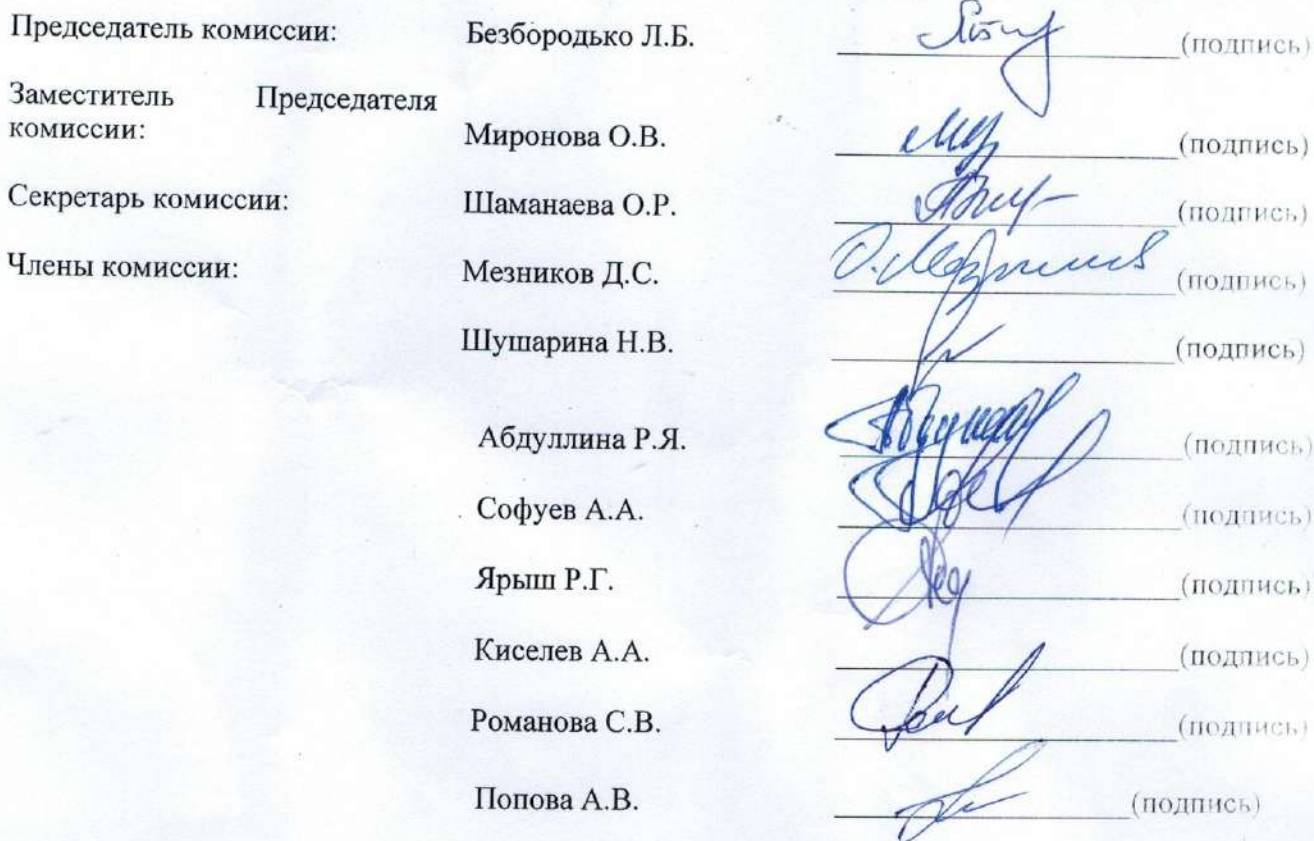 Председатель комиссии: Безбородько Л.Б. (подпись)
Заместитель Председателя
комиссии: Миронова О.В. (подпись)
Секретарь комиссии: Шаманаева О.Р. (подпись)
Члены комиссии: Мезников Д.С. (подпись)
Шушарина Н.В. (подпись)
Абдуллина Р.Я. (подпись)
Софуев А.А. (подпись)
Ярыш Р.Г. (подпись)
Киселев А.А. (подпись)
Романова С.В. (подпись)
Попова А.В. (подпись)